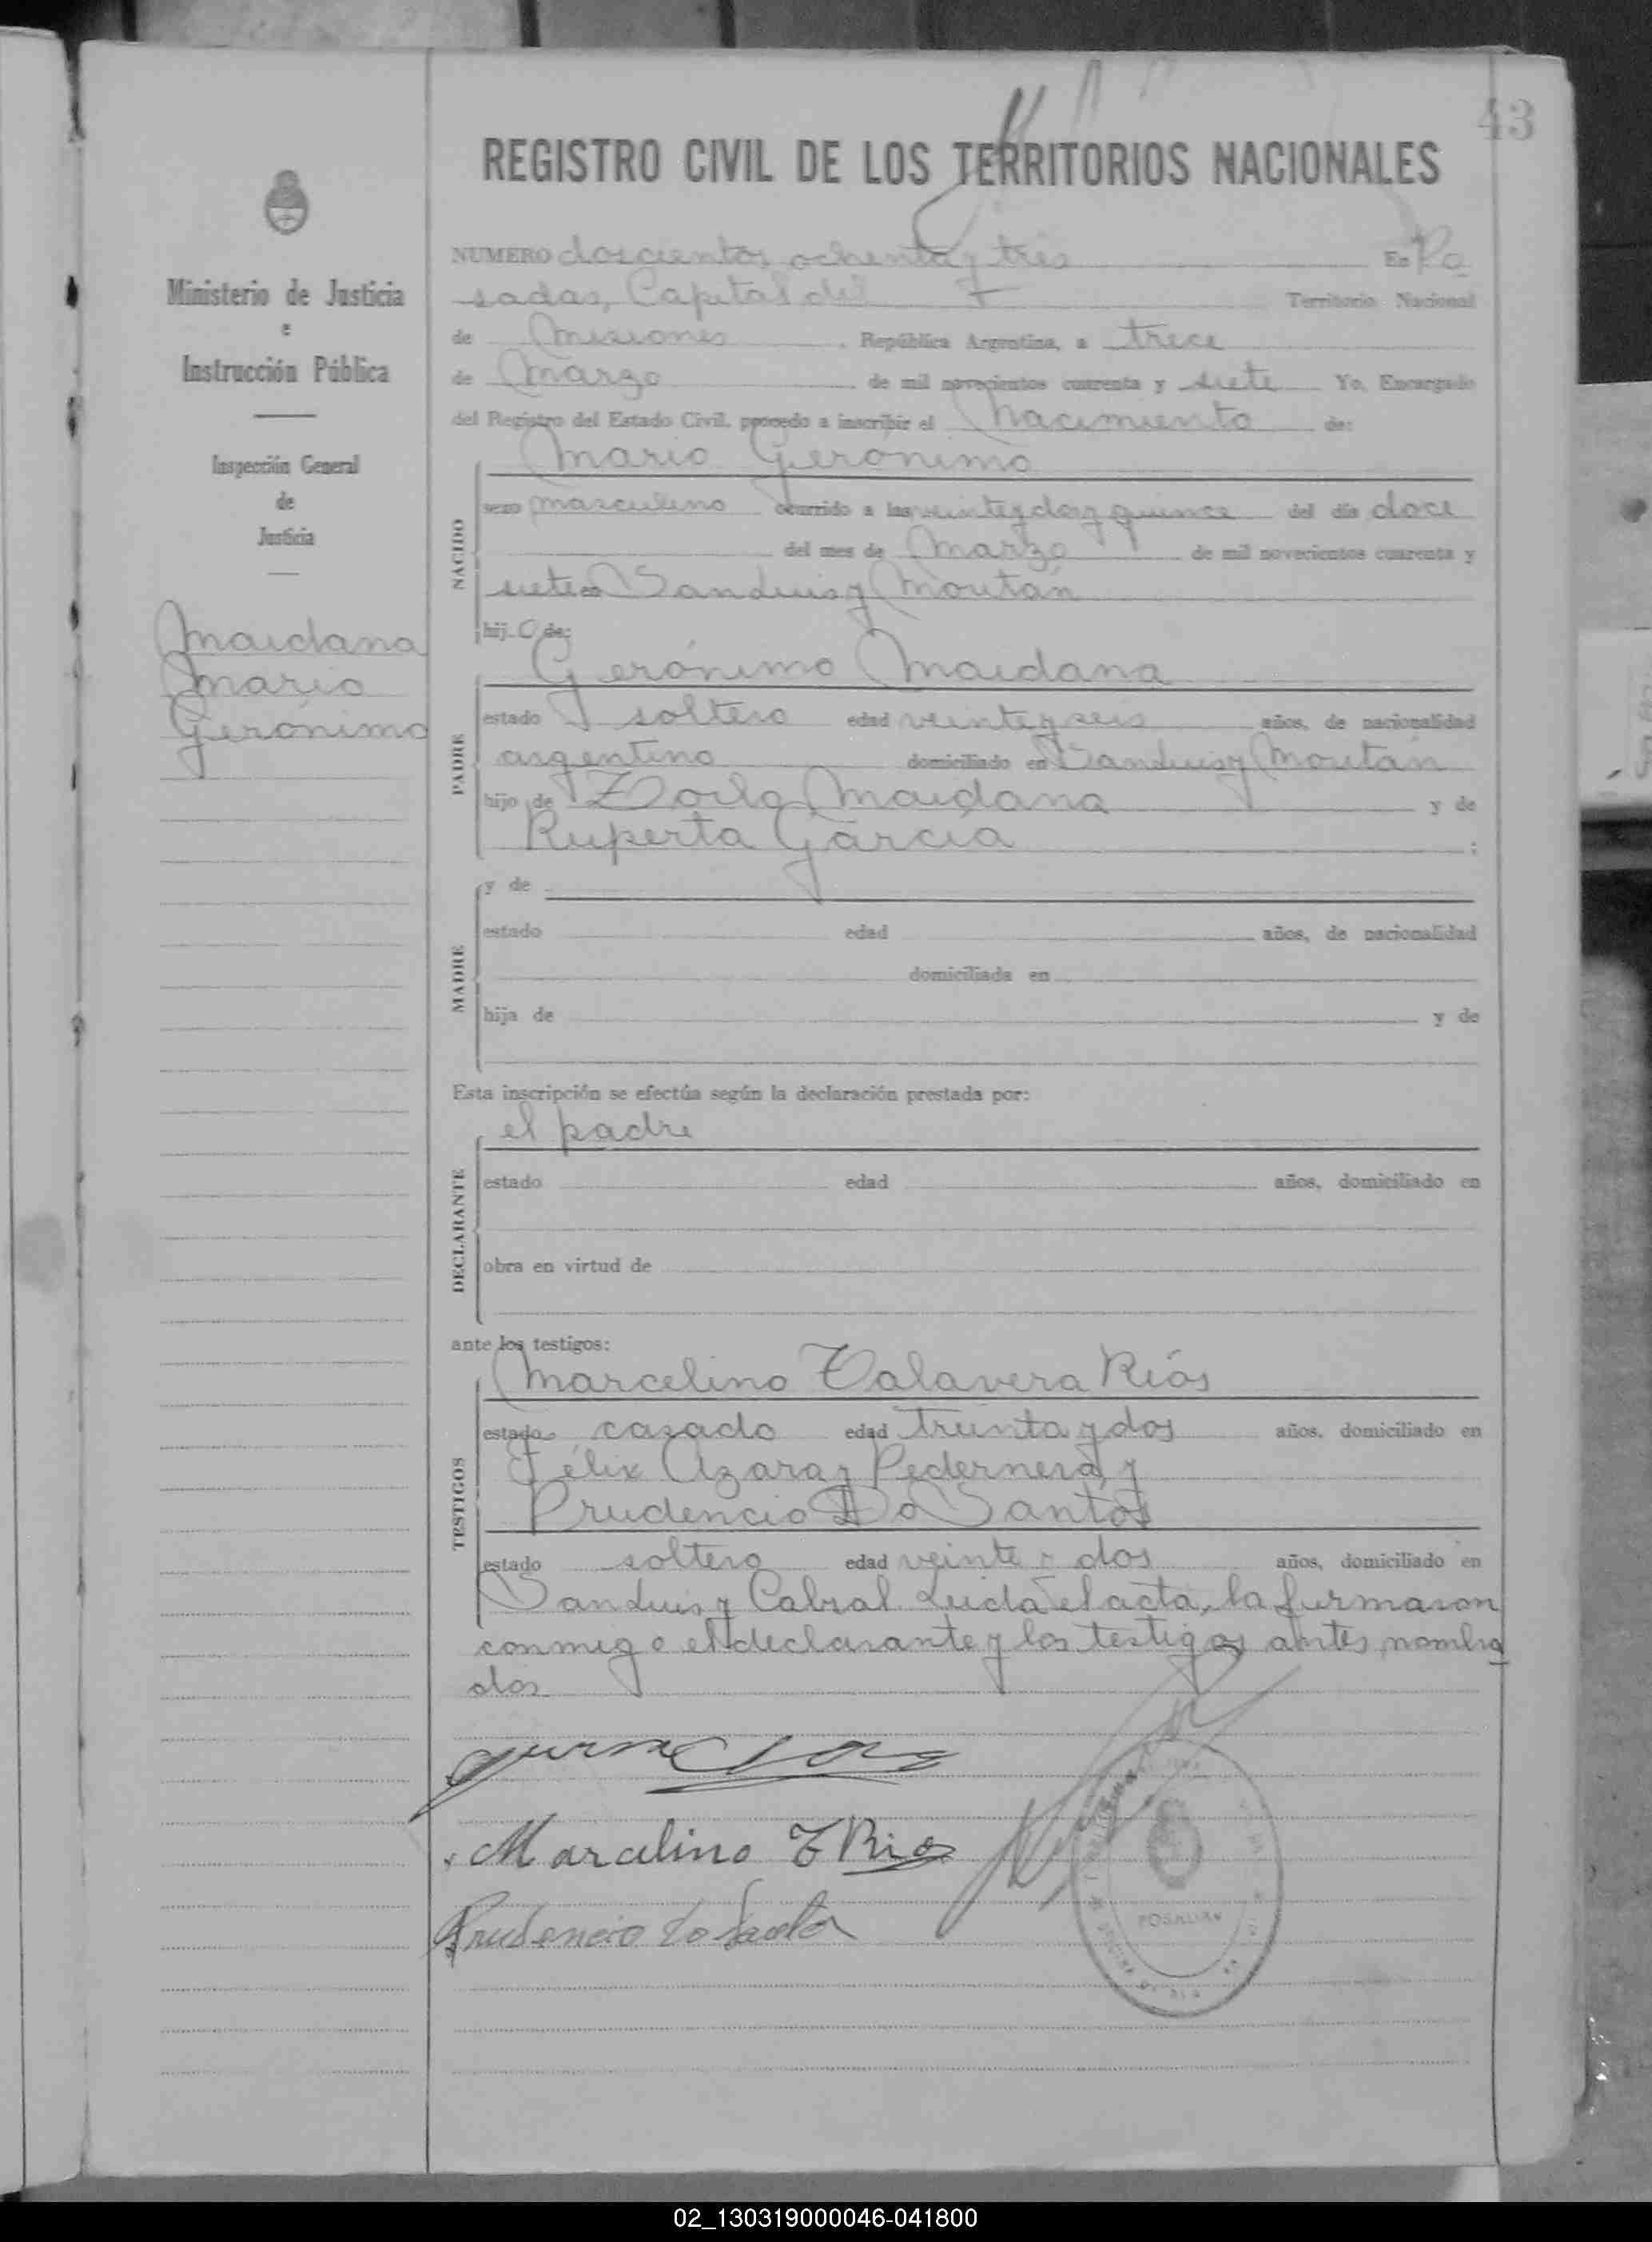 43
REGISTRO CIVIL DE LOS TERRITORIOS NACIONALES
Ministerio de Justicia
e
Instrucción Pública
Inspección General
de
Justicia
Maidana
Mario
Gerónimo
NUMERO doscientos ochenta y tres En Po
sadas, Capital del Territorio Nacional
de Misiones, República Argentina, a trece
de Marzo de mil novecientos cuarenta y siete Yo, Encargado
del Registro del Estado Civil, procedo a inscribir el Nacimiento de:
NACIDO
Mario Gerónimo
sexo masculino ocurrido a las veinte y dos y quince del día doce
del mes de Marzo de mil novecientos cuarenta y
siete en San Luis y Moután
hijo de:
PADRE
Gerónimo Maidana
estado soltero edad veinte y seis años, de nacionalidad
argentino domiciliado en San Luis y Moután
hijo de Maidana y de
Ruperta García ;
MADRE
y de
estado edad años, de nacionalidad
domiciliada en
hija de y de
Esta inscripción se efectúa según la declaración prestada por:
DECLARANTE
el padre
estado edad años, domiciliado en
obra en virtud de
ante los testigos:
TESTIGOS
Marcelino Talavera Ríos
estado casado edad treinta y dos años, domiciliado en
Félix Azara y Pedernera y
Prudencio Do Santos
estado soltero edad veinte y dos años, domiciliado en
San Luis y Cabral Leida el acta, la firmaron
conmigo el declarante y los testigos antes nombra
dos
Marcelino T Rios
Prudencio Do Santos
POSADAS
02_130319000046-041800